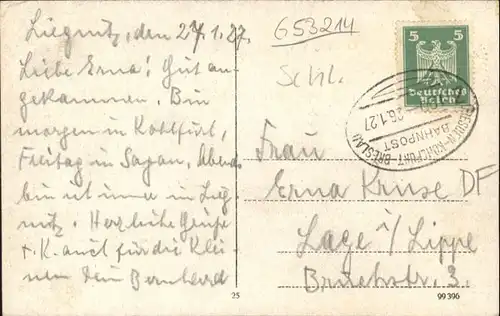 Liegnitz, den 27.1.27.
Liebe Erna! Gut an-
gekommen. Bin
morgen in Kohlfurt,
Freitag in Sagan, Abends
bin ich immer in Lieg-
nitz. Herzliche Grüße
+ K. auch für die Klei-
nen Dein Bernhard
G53214
Schl.
5 5
Deutsches
Reich
DRESDEN-KOHLFURT-BRESLAU
26.1.27
BAHNPOST
Frau
Erna Kruse DF
Lage i/Lippe
3.
25
99 396